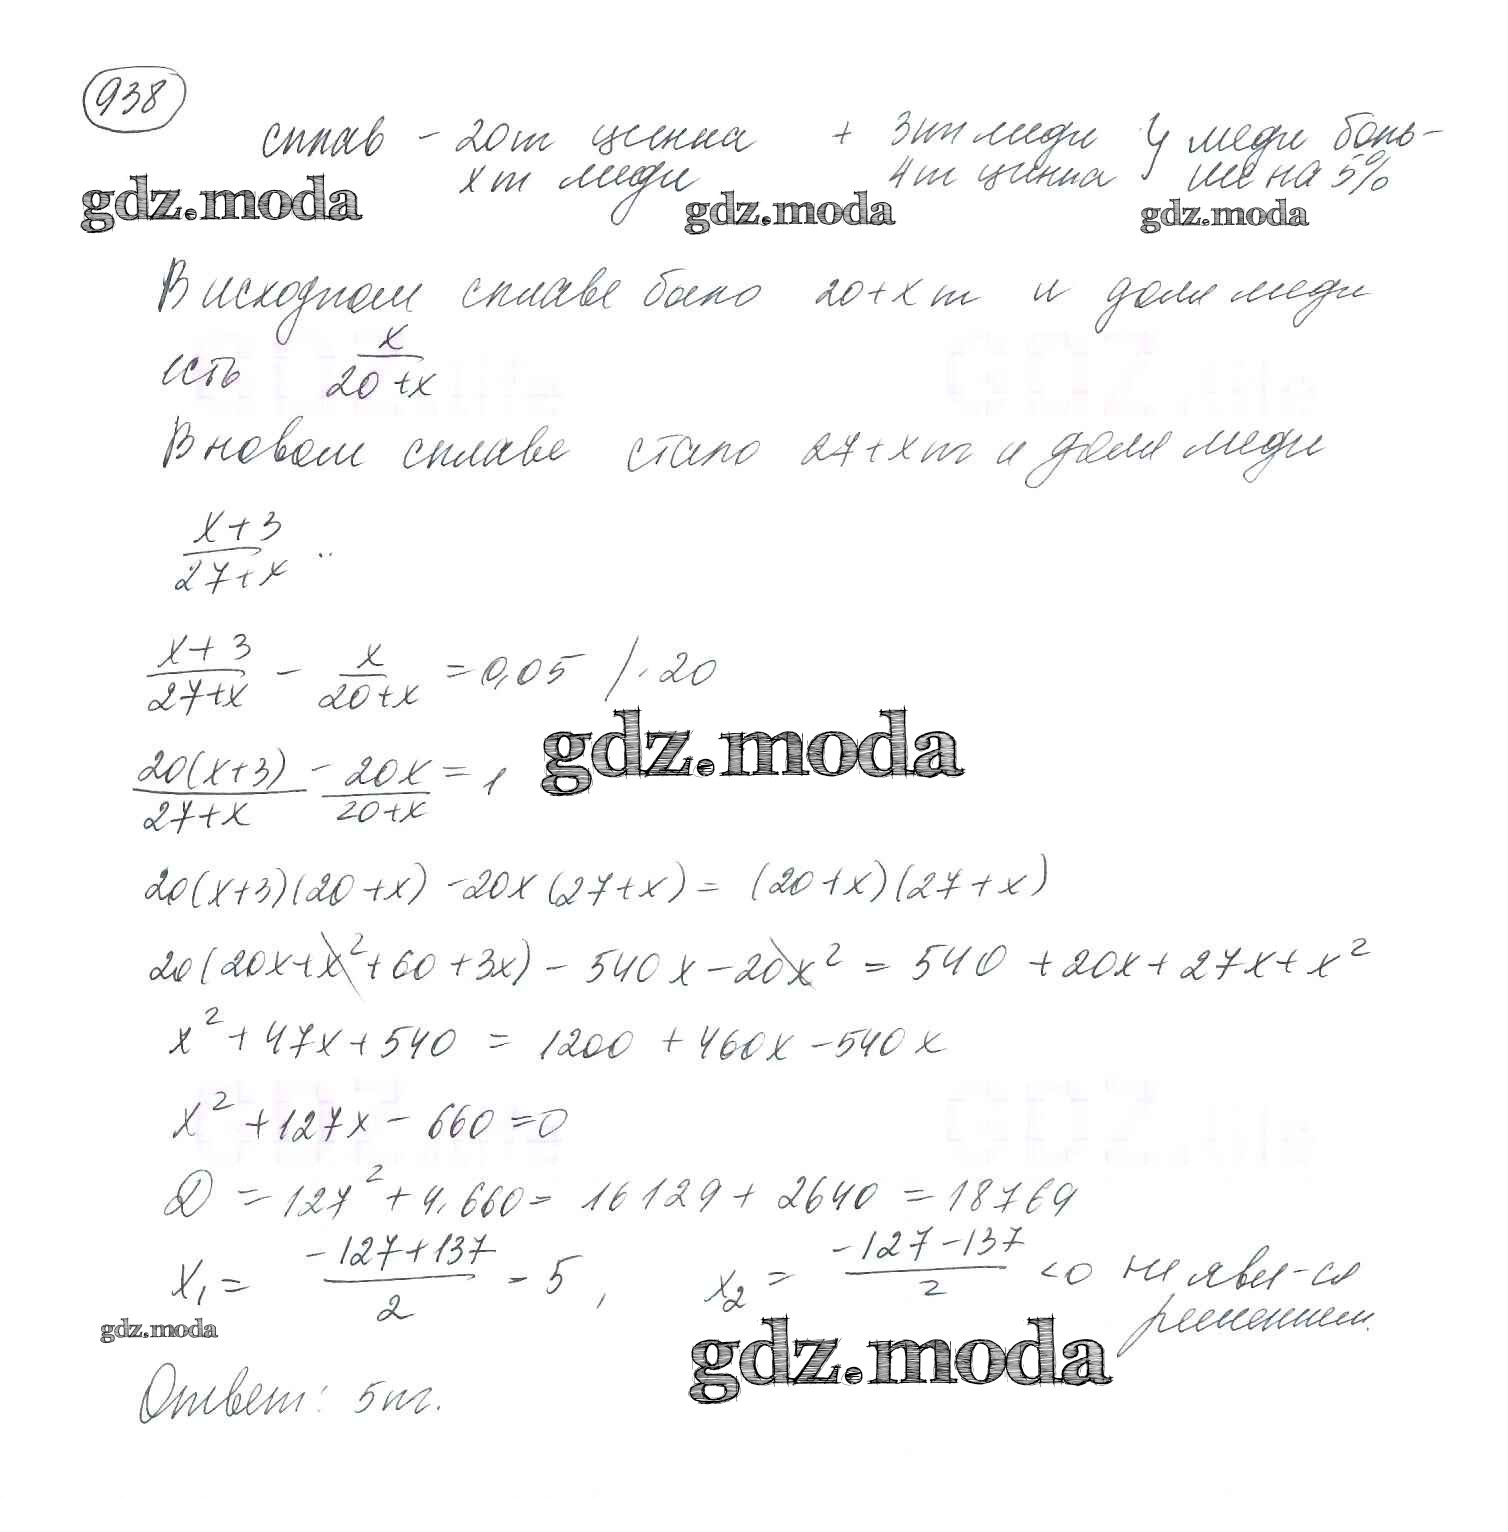 938
сплав – 20т цинка + 3т меди } меди боль-
х т меди 4т цинка ше на 5%
gdz.moda gdz.moda gdz.moda
В исходном сплаве было 20+х т и доля меди
есть x/(20+x)
В новом сплаве стало 27+х т и доля меди
(x+3)/(27+x) ..
(x+3)/(27+x) – x/(20+x) = 0,05 /·20
gdz.moda
20(x+3)/(27+x) – 20x/(20+x) = 1
20(x+3)(20+x) – 20x(27+x) = (20+x)(27+x)
20(20x+x²+60+3x) – 540x – 20x² = 540 + 20x + 27x + x²
x² + 47x + 540 = 1200 + 460x – 540x
x² + 127x – 660 = 0
D = 127² + 4·660 = 16129 + 2640 = 18769
x₁ = (–127+137)/2 = 5, x₂ = (–127–137)/2 <0 не явл-ся
решением.
gdz.moda gdz.moda
Ответ: 5т.